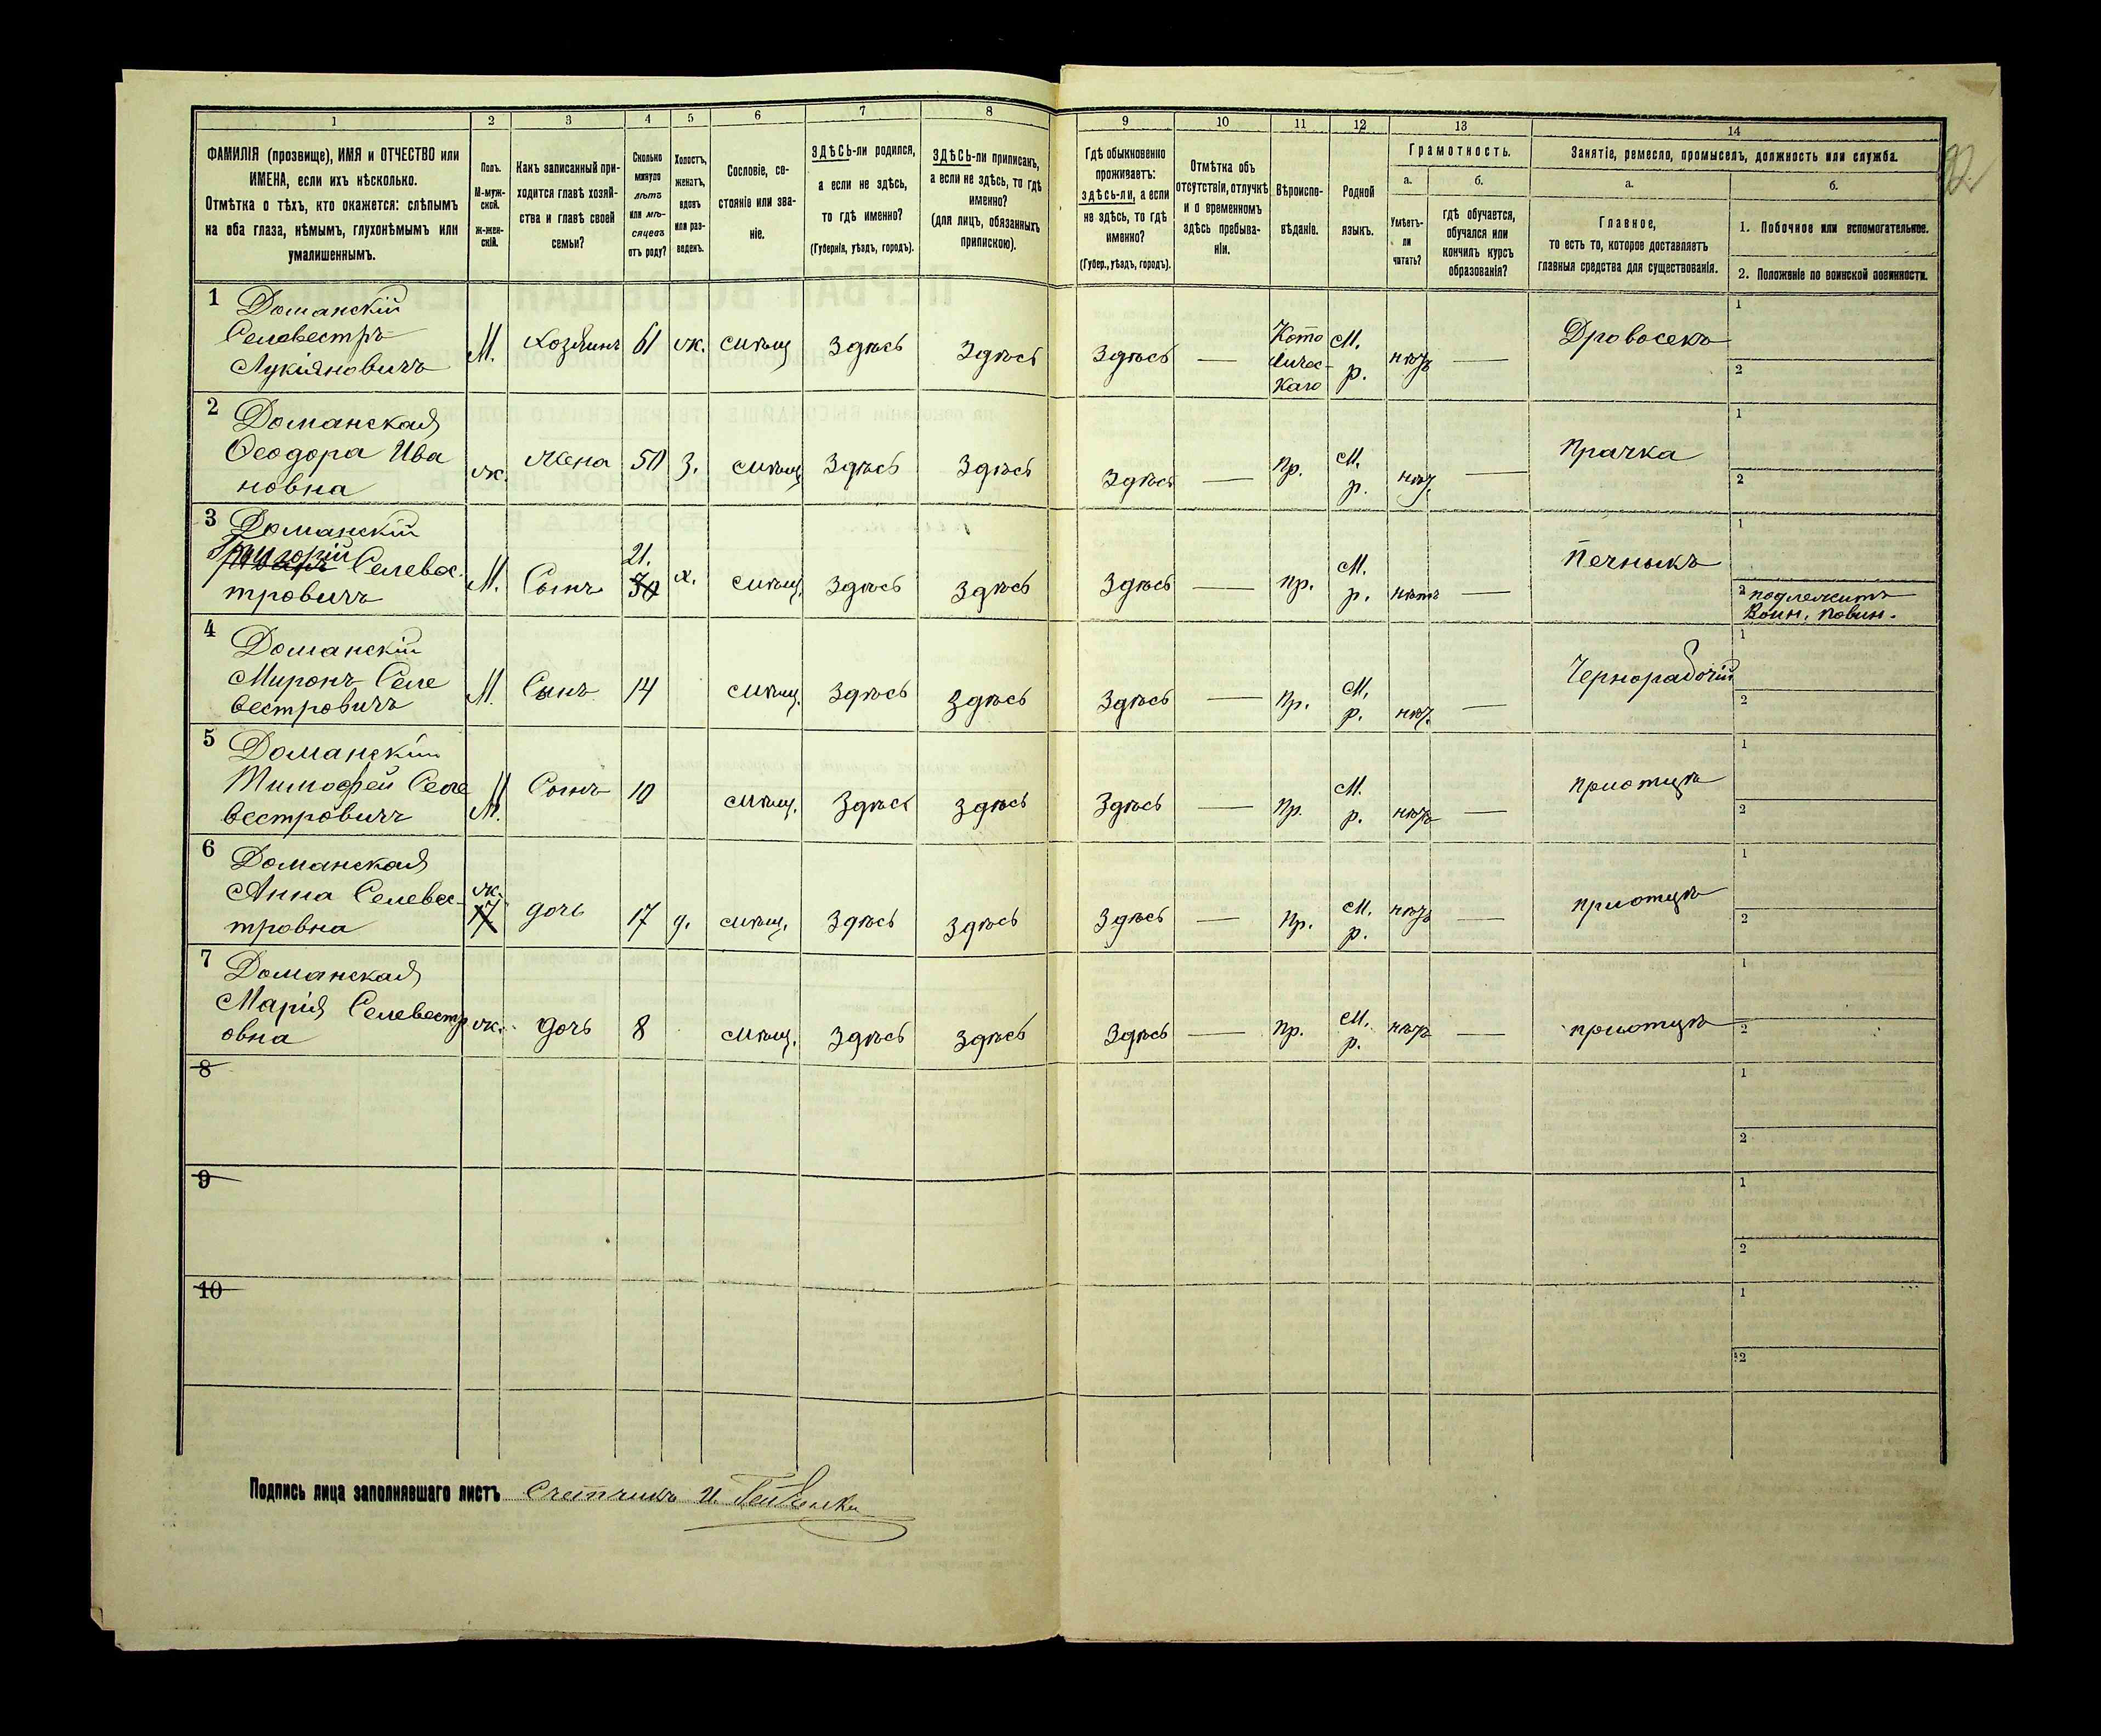 1 2 3 4 5 6 7 8 9 10 11 12 13 14
ФАМИЛІЯ (прозвище), ИМЯ и ОТЧЕСТВО или
ИМЕНА, если ихъ нѣсколько.
Отмѣтка о тѣхъ, кто окажется: слѣпымъ
на оба глаза, нѣмымъ, глухонѣмымъ или
умалишеннымъ.
Полъ.
М-муж-
ской.
ж-жен-
скій.
Какъ записанный при-
ходится главѣ хозяй-
ства и главѣ своей
семьи?
Сколько
минуло
лѣтъ
или мѣ-
сяцевъ
отъ роду?
Холостъ,
женатъ,
вдовъ
или раз-
веденъ.
Сословіе, со-
стояніе или зва-
ніе.
ЗДѢСЬ-ли родился,
а если не здѣсь,
то гдѣ именно?
(Губернія, уѣздъ, городъ).
ЗДѢСЬ-ли приписанъ,
а если не здѣсь, то гдѣ
именно?
(для лицъ, обязанныхъ
припискою).
Гдѣ обыкновенно
проживаетъ:
здѣсь-ли, а если
не здѣсь, то гдѣ
именно?
(Губер., уѣздъ, городъ).
Отмѣтка объ
отсутствіи, отлучкѣ
и о временномъ
здѣсь пребыва-
ніи.
Вѣроиспо-
вѣданіе.
Родной
языкъ.
Грамотность.
а.
Умѣетъ-
ли
читать?
б.
гдѣ обучается,
обучался или
кончилъ курсъ
образованія?
Занятіе, ремесло, промыселъ, должность или служба.
а.
Главное,
то есть то, которое доставляетъ
главныя средства для существованія.
б.
1. Побочное или вспомогательное.
2. Положеніе по воинской повинности.
92
1 Доманскій
Селевестръ
Лукіяновичъ
М. Хозяинъ 61 ж. мѣщ Здѣсь Здѣсь Здѣсь —
Като
личес-
каго
М.
р.
нѣтъ — Дровосекъ
1
2
2 Доманская
Ѳеодора Ива
новна
ж. Жена 50 З. мѣщ Здѣсь Здѣсь Здѣсь — Пр.
М.
р.
нѣт. — Прачка
1
2
3 Доманскій
Григорій Селевес-
тровичъ
М. Сынъ
21.
30
х. мѣщ. Здѣсь Здѣсь Здѣсь — пр.
М.
р.
нѣтъ — Печныкъ
1
2 подлежитъ
Воин. повин.
4 Доманскій
Миронъ Селе
вестровичъ
М. Сынъ 14 мѣщ. Здѣсь Здѣсь Здѣсь — Пр.
М.
р.
нѣт. — Чернорабочій
1
2
5 Доманскій
Тимофей Селе
вестровичъ
М. Сынъ 10 мѣщ. Здѣсь Здѣсь Здѣсь — Пр.
М.
р.
нѣтъ — приотцѣ
1
2
6 Доманская
Анна Селевес-
тровна
ж.
17
дочь 17 д. мѣщ. Здѣсь Здѣсь Здѣсь — Пр.
М.
р.
нѣтъ — приотцѣ
1
2
7 Доманская
Марія Селевестр
овна
ж. дочь 8 мѣщ. Здѣсь Здѣсь Здѣсь — Пр.
М.
р.
нѣтъ — приотцѣ
1
2
8
1
2
9
1
2
10
1
2
Подпись лица заполнявшаго листъ Счетчикъ И.